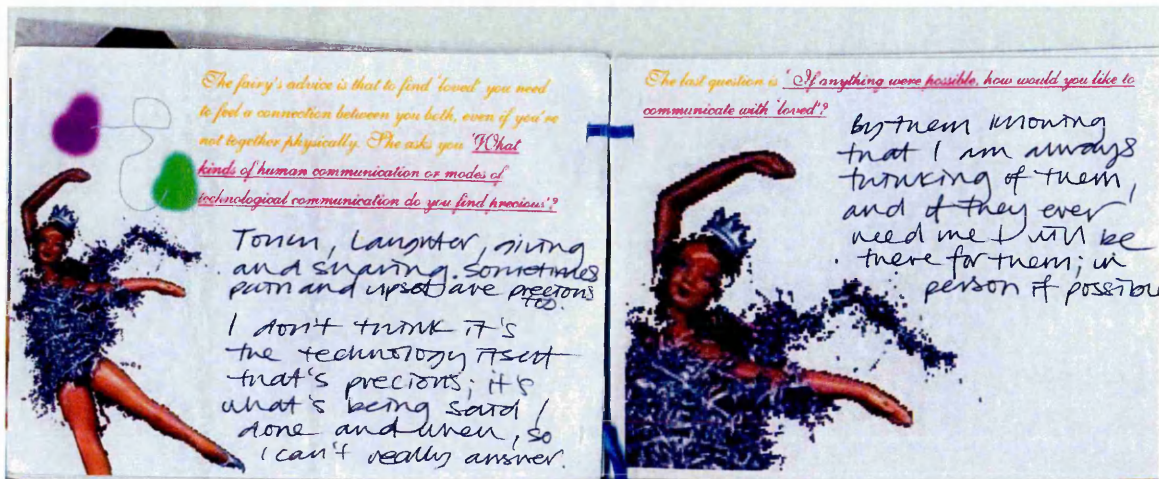 The fairy's advice is that to find 'loved' you need
to feel a connection between you both, even if you're
not together physically. She asks you 'What
kinds of human communication or modes of
technological communication do you find precious'?
Touch, Laughter, giving
and sharing. sometimes
pain and upset are precious
too.
I don't think it's
the technology itself
that's precious; it's
what's being said /
done and when, so
I can't really answer.
The last question is 'If anything were possible, how would you like to
communicate with 'loved'?
By them knowing
that I am always
thinking of them,
and if they ever
need me I will be
there for them; in
person if possible